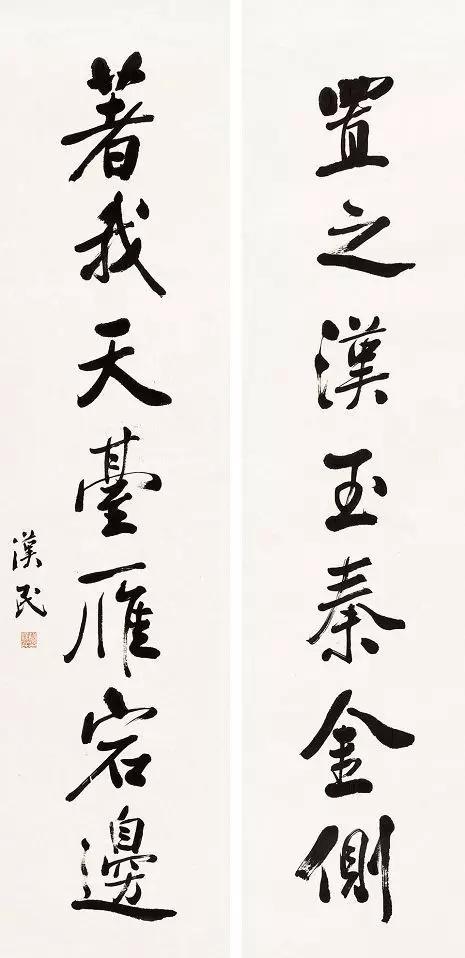 置之漢玉秦金側
著我天臺雁宕邊
漢民